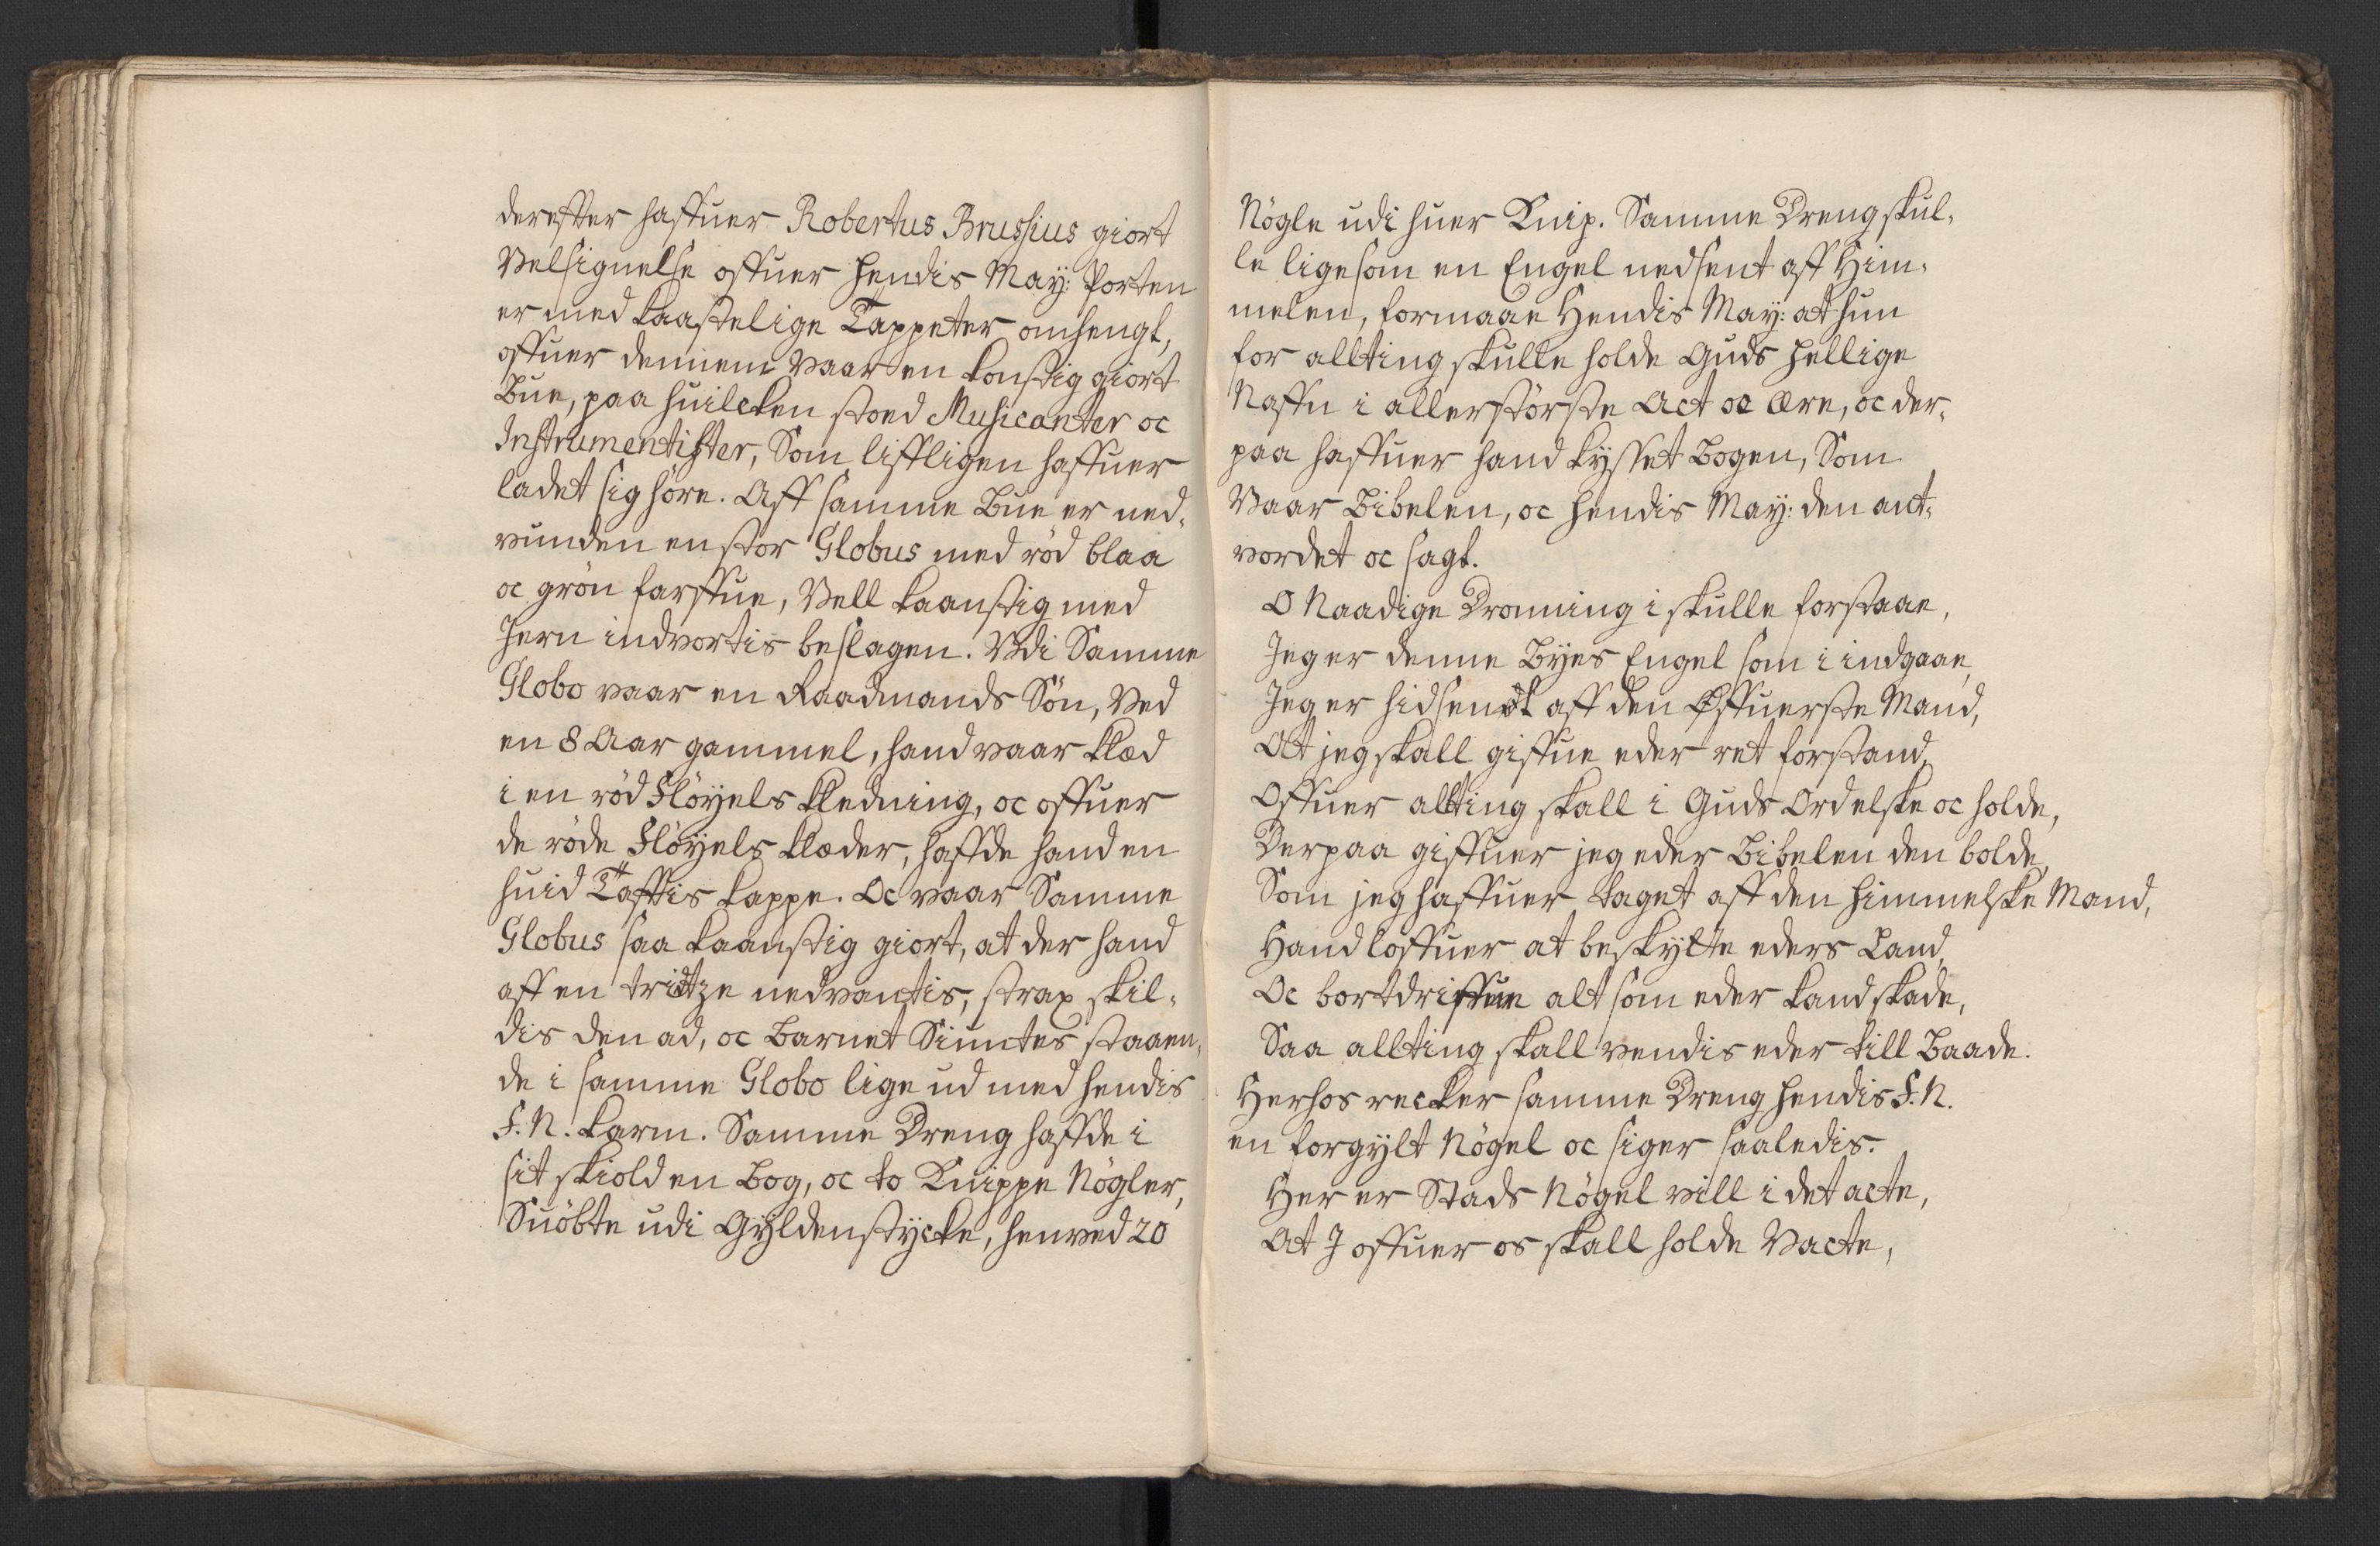 derefter haffuer Robertus Brussius giort
Velsignelse offuer hendis May: Porten
er med kaastelige Tappeter omhengt,
offuer dennem vaar en konstig giort
Bue, paa huilcken stoed Musicanter oc
Instrumentister, Som liffligen haffuer
ladet sig höre. Aff samme Bue er ned-
vunden en stor Globus med röd blaa
oc grön farffue, Vell kaanstig med
Jern indvortis beslagen. Udi Samme
Globo vaar en Raadmands Sön, Ved
en 8 Aar gammel, hand vaar klæd
i en röd Flöyels kledning, oc offuer
de röde Flöyels klæder, haffde hand en
huid Taffts kappe. Oc vaar Samme
Globus saa kaanstig giort, at der hand
aff en tridtze nedvantis, strax skil-
dis den ad, oc Barnet Siuntes staaen-
de i samme Globo lige ud med hendis
F. N. karm. Samme Dreng haffde i
sit skiold en Bog, oc to Knippe Nögler,
Suöbte udi Gyldenstycke, henved 20
Nögle udi huer Knip. Samme Dreng skul-
le ligesom en Engel nedsent aff Him-
melen, formaae Hendis May: at hun
for allting skulle holde Guds hellige
Naffn i allerstörste Act oc Ære, oc der-
paa haffuer hand kysset Bogen, Som
Vaar Bibelen, oc hendis May: den ant-
vordet oc sagt.
O Naadige Droning i skulle forstaae,
Jeg er denne Byes Engel som i indgaae,
Jeg er hidsendt aff den Öffuerste Mand,
At jeg skall giffue eder ret forstand,
Offuer allting skall i Guds Ord elske oc holde,
Derpaa giffuer jeg eder Bibelen den bolde,
Som jeg haffuer taget aff den himmelske Mand,
Hand loffuer at beskytte eders Land,
Oc bortdriffue alt som eder kand skade,
Saa allting skall vendis eder till Baade.
Herhos recker samme Dreng hendis F. N.
en forgylt Nögel oc siger saaledis.
Her er Stads Nögel vill i det acte,
At J offuer os skall holde Vacte,